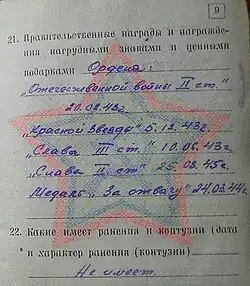 9
21. Правительственные награды и награжде-
ния нагрудными знаками и ценными
подарками Ордена:
„Отечественной войны II ст."
20.02.43г.
„Красной Звезды" 5.12.43г.
„Слава III ст." 10.06.43г
„Слава II ст." 25.03.45г.
Медаль „За отвагу" 24.03.44г
22. Какие имеет ранения и контузии (дата
и характер ранения (контузии)
Не имеет.